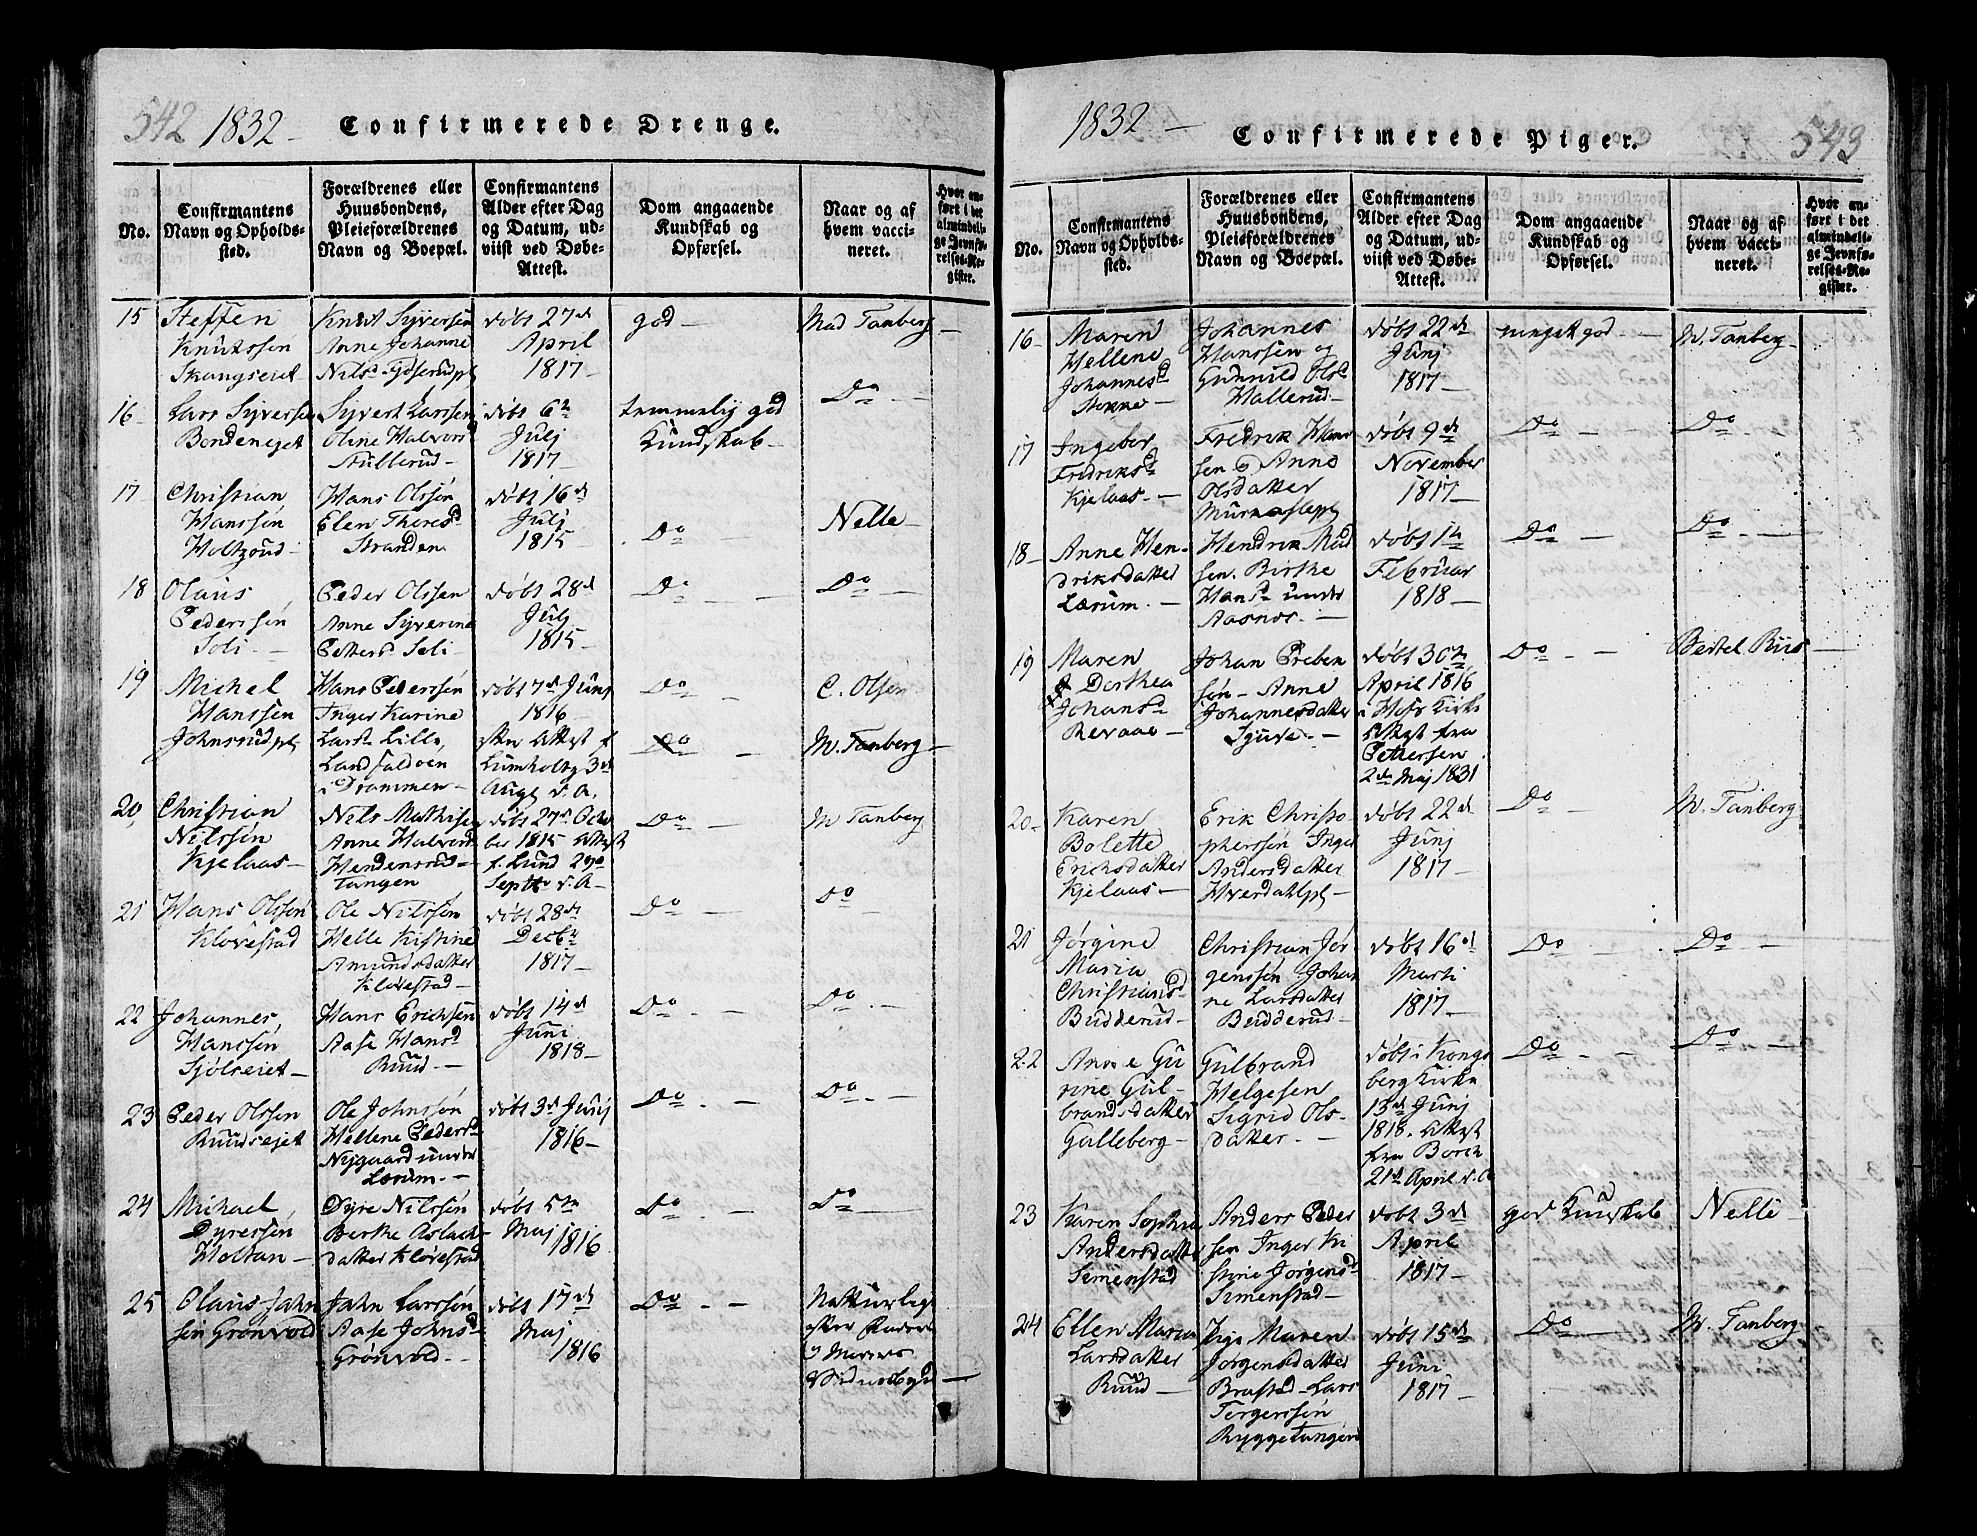 542 1832 -
Confirmerede Drenge.
No.
Confirmantens
Navn og Opholds-
sted.
Forældrenes eller
Huusbondens,
Pleieforældrenes
Navn og Boepæl.
Confirmantens
Alder efter Dag
og Datum, ud-
viist ved Døbe-
Attest.
Dom angaaende
Kundskab og
Opførsel.
Naar og af
hvem vacci-
neret.
Hvor an-
ført i det
almindeli-
ge Jevnfø-
relses-Re-
gister.
15
Steffen
Knutssøn
Skangseiet
Knut Syverssen
Anne Johanne
Nilsd
døbt 27de
April
1817 -
god -
Mad Tanberg -
16
Lars Syversen
Bondeneget
Syvert Larssen
Oline Halvors
Stullerud -
døbt 6te
Julj
1817 -
temmelig god
Kundskab -
Do -
17
Christian
Hanssøn
Holtzrud -
Hans Olssøn
Elen Theresd
Stranden
døbt 16de
Julj
1815 -
Do -
Nelle -
18
Olaus
Pederssøn
Soli -
Peder Olssen
Anne Syverine
Petersd Soli -
døbt 28de
Julj
1815 -
Do -
Do -
19
Michel
Hanssen
Johnsrudplj
Hans Pederssøn
Inger Karine
Larsd Lille
Landfaldøen
i Drammen -
døbt 7de Junj
1816 -
Attest f.
Lumholtz 3de
Aug v. A.
Do -
Do -
C. Olsen
M. Tanberg -
20
Christian
Nilssøn
Kjelaas -
Nils Mathisen
Anne Halvors
Hendensrud-
tangen
døbt 27de Octo
ber 1815 Attest
f. Lund 29de
Septbr v. A -
Do -
M Tanberg
21
Hans Olssøn
Klovestad
Ole Nilssøn
Helle Kistine
Amundsdatter
Klovestad -
døbt 28de
Decbr
1817 -
Do -
Do -
22
Johannes
Hanssøn
Sjølseiet -
Hans Erichsen
Aase Hansd
Ruud. -
døbt 14de
Juni
1818 -
Do -
Do -
23
Peder Olssen
Ruudsejet
Ole Johnssøn
Hellene Pedersd
Nygaard under
Lærum. -
døbt 3de Junj
1816 -
Do -
Do -
24
Michael
Dyressøn
Holtan -
Dyre Nilssøn
Berthe Aslach-
datter Klovestad
døbt 5te
Maj 1816
Do -
Do -
25
Olaus Jahn
sen Grønvold
Jahn Larssøn
Aase Johnsd
Grønvold -
døbt 17de
Maj
1816
Do -
Natturlige
1832 -
Confirmerede Piger. 543
No.
Confirmantens
Navn og Opholds-
sted.
Forældrenes eller
Huusbondens,
Pleieforældrenes
Navn og Boepæl.
Confirmantens
Alder efter Dag
og Datum, ud-
viist ved Døbe-
Attest.
Dom angaaende
Kundskab og
Opførsel.
Naar og af
hvem vacci-
neret.
Hvor an-
ført i det
almindeli-
ge Jevnfø-
relses-Re-
gister.
16
Maren
Hellene
Johannesd
Stokke
Johannes
Hanssøn og
Gunnild Olsd
Hallerud -
døbt 22de
Junj
1817 -
meget god -
M. Tanberg -
17
Ingebor
Fredriksd
Kjelaas -
Fredrik Hans
sen og Anne
Olsdatter
døbt 9de
November
1817 -
Do -
Do -
18
Anne Hen-
driksdatter
Lærum. -
Hendrik Mad
sen. Birthe
Hansd under
Aasnes. -
døbt 1te
Februar
1818 -
Do -
Do -
19
Maren
Dorthea
Johansd
Revaae -
Johan Preben
søn - Anne
Johannesdatter
døbt 30te
April 1816
i Hofs Kirke
Attest fra
Pettersen
2den Maj 1831
Do -
Bertel Riis -
20
Karen
Bolette
Erichsdatter
Kjelaas -
Erik Christo
pherssøn Inger
Andersdatter
døbt 22de
Junj
1817 -
Do -
M. Tanberg
21
Jørgine
Maria
Christiansd
Budderud -
Christian Jør
genssøn Johan
ne Larsdatter
Budderud -
døbt 16de
Marti
1817 -
Do -
Do -
22
Anne Gu
rine Gul-
brandsdatter
Galleberg -
Gulbrand
Helgesen
Sigrid Ols-
datter. -
døbt i Kongs
berg Kirke
13de Junj
1818. Attest
fra Borch
21de April v. A
Do -
Do -
23
Karen Sophia
Andersdatter
Simenstad
Anders Peder
sen Inger Ki
stine Jørgensd
Simenstad -
døbt 3de
April
1817 -
god Kundskab
Nelle -
24
Ellen Maria
Larsdatter
Ruud -
Pige Maren
Jorgensdatter
Brastad - Lars
Torgerssøn
Ryggetangen
døbt 15de
Juni
1817 -
Do -
M. Tanberg